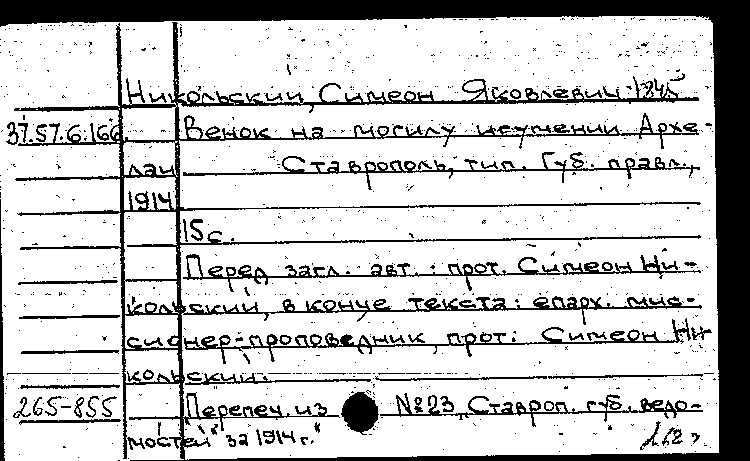 Никольский, Симеон Яковлевич 1845
37.57.6.166. Венок на могилу игумении Архе-
лаи Ставрополь, тип. Губ. правл.,
1914
15с.
Перед загл. авт.: прот. Симеон Ни-
кольский, в конце текста: епарх. мис-
сионер-проповедник, прот. Симеон Ни
кольский.
265-855 Перепеч. из №23 "Ставроп. губ. ведо-
мостей" за 1914 г."